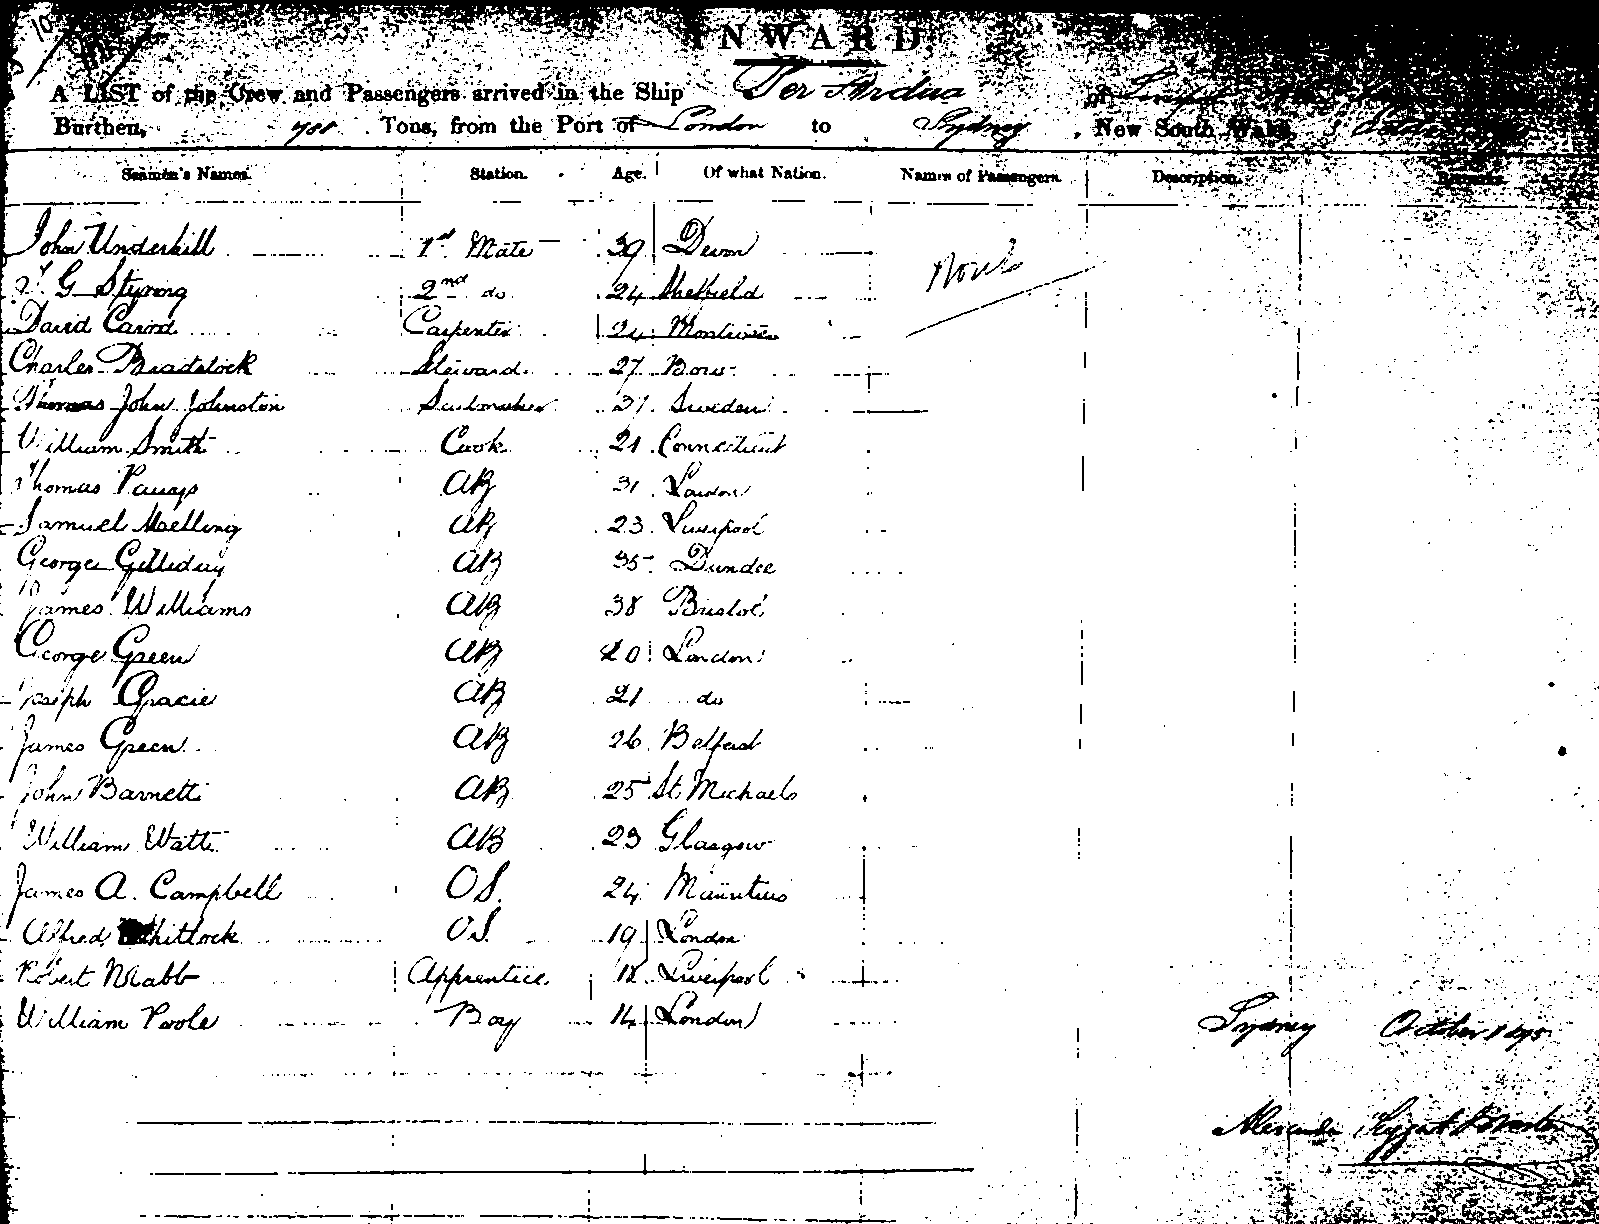 INWARD.
A LIST of the Crew and Passengers arrived in the Ship Per Ardua of
Burthen, Tons, from the Port of London to Sydney, New South Wales,
Seamen's Names. Station. Age. Of what Nation. Names of Passengers. Description. Remarks.
John Underhill 1st Mate 39 Devon
G Styring 2nd do 24 Sheffield None
David Carpenter 24
Charles Braddock Steward 27 Bow
Thomas John Johnston Sailmaker 31 Sweden
William Smith Cook 21 Connecticut
Thomas AB 31 London
Samuel Melling AB 23 Liverpool
George Gilliday AB 35 Dundee
James Williams AB 38 Bristol
George Green AB 20 London
Joseph Gracie AB 21 do
James Green AB 26 Belfast
John Barnett AB 25 St Michaels
William Watt AB 23 Glasgow
James A. Campbell OS. 24 Mauritius
Alfred Whitlock OS. 19 London
Robert Mabb Apprentice 18 Liverpool
William Poole Boy 14 London
Sydney October
Alexander